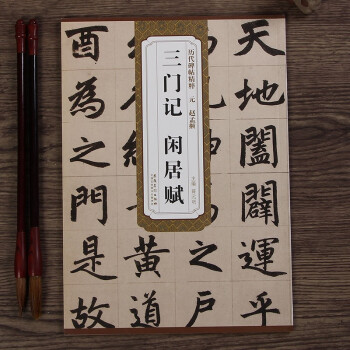 历代碑帖精粹 元 赵孟頫
三门记 闲居赋
天地闔闢運乎
之户
黄道
酉為之門是故